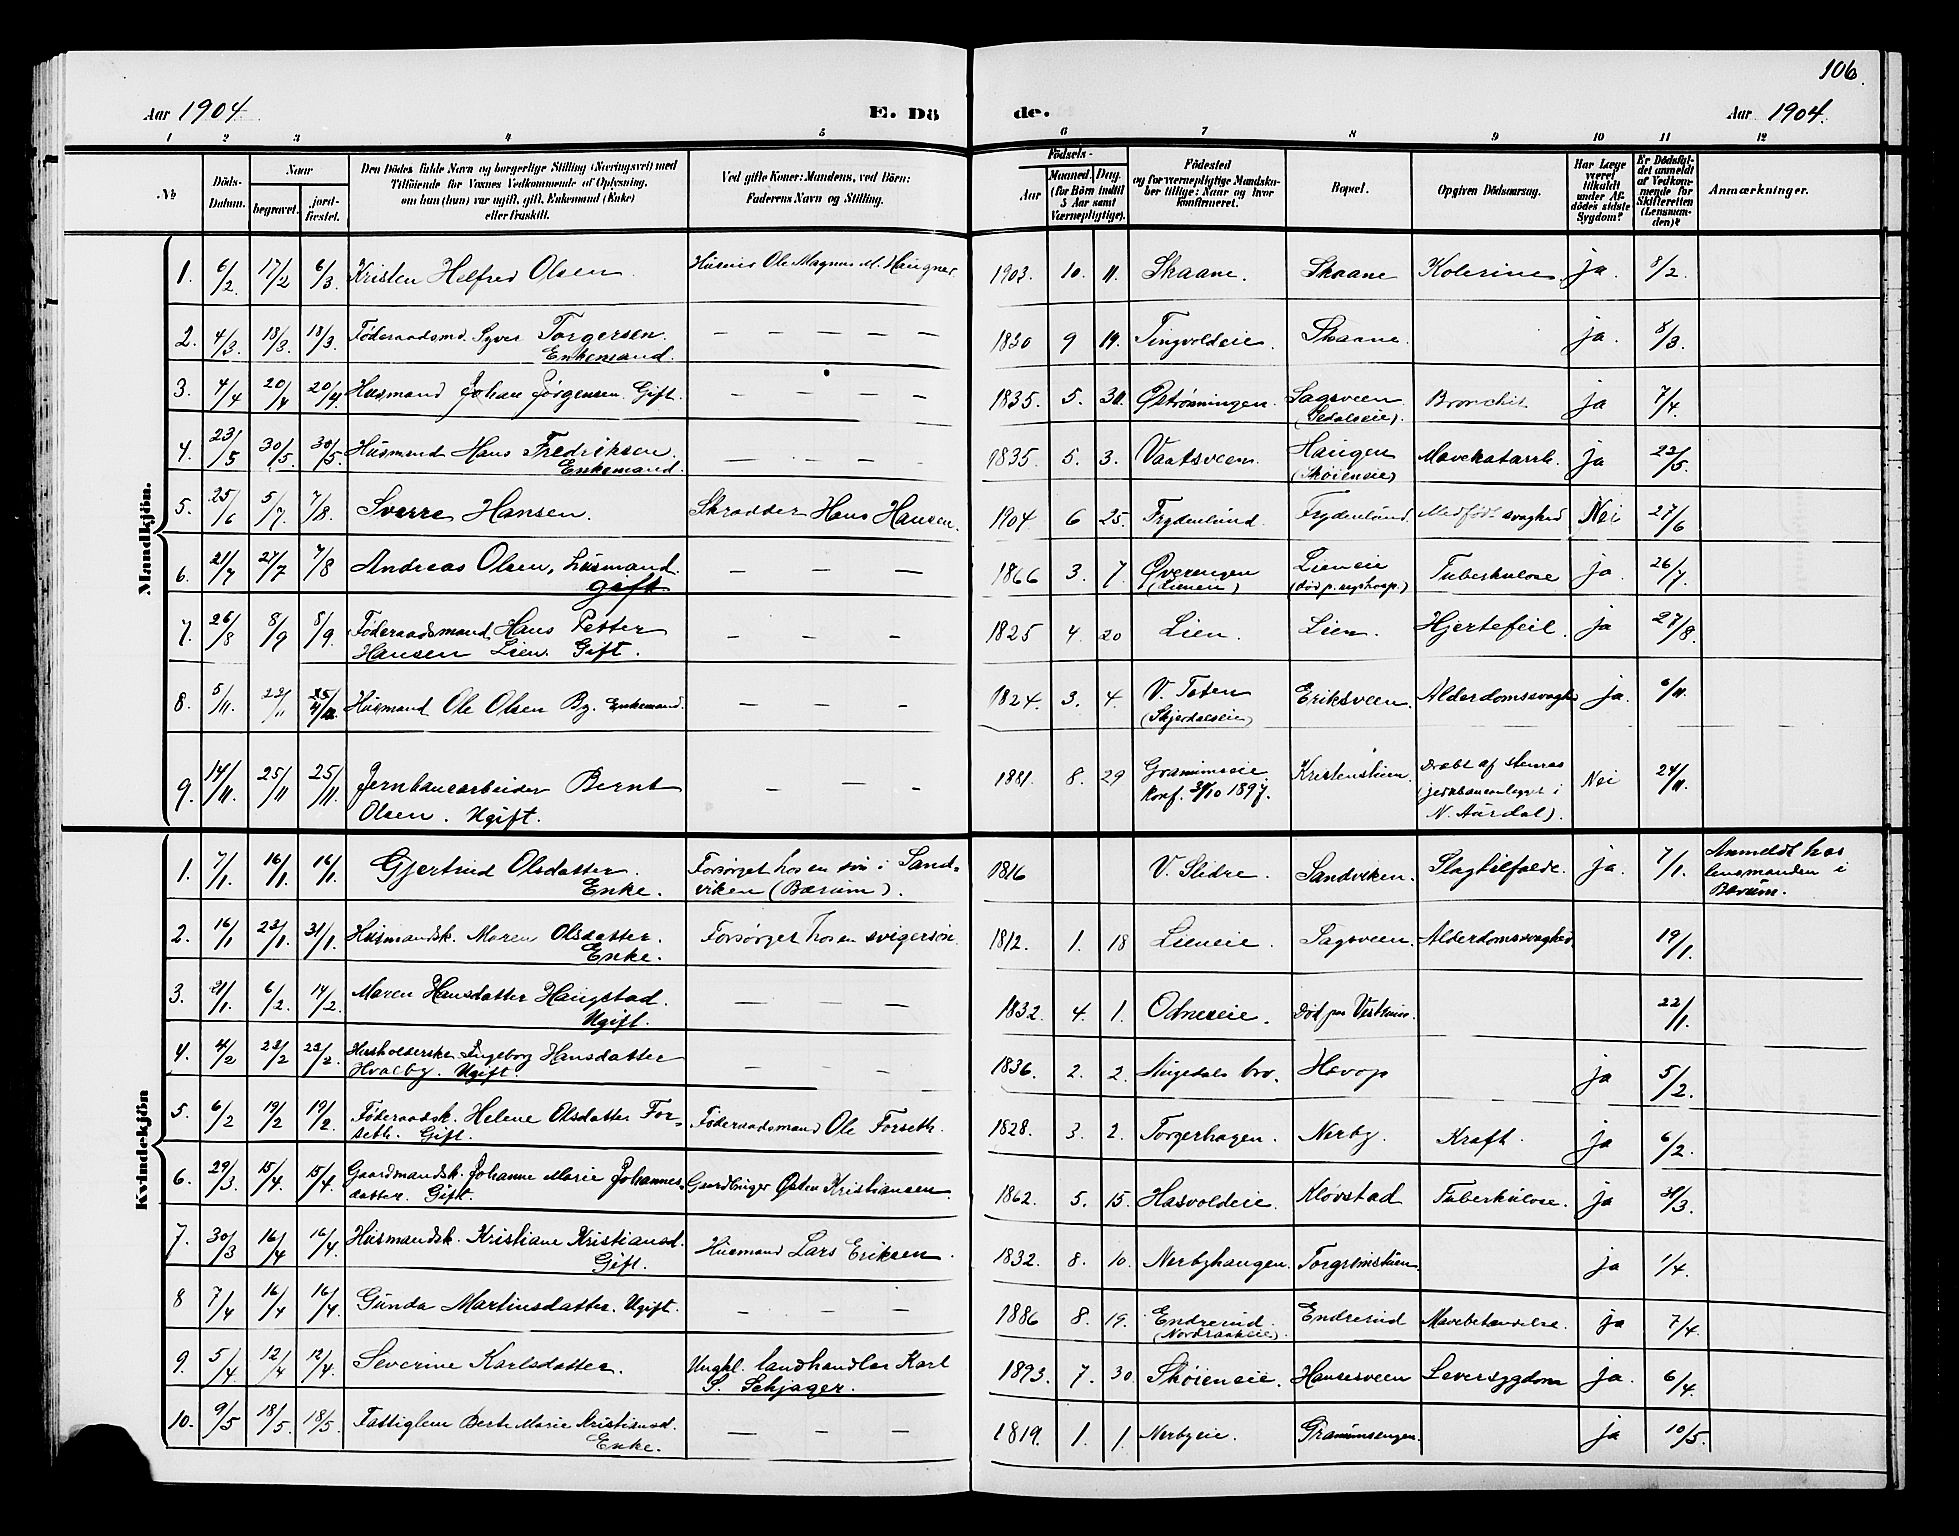 106
Aar 1904
E. Dö
de.
Aar 1904.
1 2 3 4 5 6 7 8 9 10 11 12
№
Döds-
Datum.
Naar
begravet.
jord-
fæstet.
Den Dødes fulde Navn og borgerlige Stilling (Næringsvei) med
Tilføiende for Voxnes Vedkommende af Oplysning,
om han (hun) var ugift, gift, Enkemand (Enke)
eller fraskilt.
Ved gifte Koner: Mandens, ved Börn:
Faderens Navn og Stilling.
Födsels-
Aar
Maaned. Dag.
(for Börn indtil
5 Aar samt
Værnepligtige).
Födested
og for værnepligtige Mandska-
ber tillige: Naar og hvor
konfirmeret.
Bopæl.
Opgiven Dödsaarsag.
Har Læge
været
tilkaldt
under Af-
dödes sidste
Sygdom?
Er Dødsfal-
det anmeldt
af Vedkom-
mende for
Skifteretten
(Lensman-
den)?
Anmærkninger.
Mandkjön.
1. 6/2 17/2 6/3 Kristen Helfred Olsen. Husmd Ole Magnus M. Haugner. 1903. 10. 11. Skaane. Skaane Kolerine ja. 8/2.
2. 4/3. 18/3. 13/3. Føderaadsmd. Syver Torgersen. — — — — — 1830 9 19. Tingvoldeie. Skaane. ja. 8/3.
Enkemand.
3. 4/4 20/4 20/4 Husmand Johan Jörgensen. Gift. — — — — — 1835. 5. 30. Østrønningen. Sagsveen Bronchit ja 7/4.
(Sedalseie).
4. 23/5 30/5. 30/5. Husmand Hans Fredriksen. — — — — 1835. 5. 3. Vaatsveen. Haugen Mavekatarrh. ja 22/5.
Enkemand (Skøieneie)
5. 25/6 5/7. 7/8. Sverre Hansen. Skrædder Hans Hansen. 1904 6 25. Frydenlund. Frydenlund. Medfødt svaghed Nei 27/6
6. 21/7 27/7 7/8 Andreas Olsen, husmand. — — — 1866 3. 7. Øverengen Lieneie Tuberkulose ja. 26/7.
gift (Lieneie) (død p. sygehosp.)
7. 26/8 8/9 8/9. Føderaadsmand Hans Petter — — — 1825 4. 20 Lien. Lien. Hjertefeil. ja 27/8.
Hansen Lien. Gift.
8. 5/11. 22/11 Husmand Ole Olsen By. Enkemand. — — — 1824. 3. 4. V. Toten Eriksveen. Alderdomssvaghd ja. 6/11.
(Skjerdalseie)
9. 14/11. 25/11 25/11. Jernbanearbeider Bernt — — — 1881. 8. 29 Grammseie. Kristenstuen. Dræbt af stenras Nei 24/11.
Olsen. Ugift. Konf. 31/10 1897. (jernbaneanlægget i
N. Aurdal).
Kvindekjön
1. 7/1. 16/1. 16/1. Gjertrud Olsdatter. Forsørget hos en søn i Sand- 1816 V. Slidre. Sandviken. Slagtilfælde. ja. 7/1. Anmeldt hos
Enke. viken (Bærum). lensmanden i
Bærum.
2. 16/1 23/1. 31/1. Husmandsk. Maren Olsdatter. Forsørget hos en svigersøn. 1812. 1. 18 Lieneie. Sagsveen. Alderdomssvaghed 19/1.
Enke.
3. 21/1. 6/2. 14/2. Maren Hansdatter Haugstad. — — — 1832. 4. 1. Odneseie. Død paa 22/1.
Ugift.
4. 4/2 23/2 23/2. Husholderske Ingeborg Hansdatter — — — 1836. 2. 2. Havop ja 5/2.
Hvalby. Ugift.
5. 6/2 19/2 19/2. Føderaadsk. Helene Olsdatter For- Føderaadsmand Ole Forseth. 1828. 3. 2. Torgerhagen. Nerby. Kræft. ja 6/2.
seth. Gift.
6. 29/3. 15/4. 15/4. Gaardmandsk. Johanne Marie Johannes- Gaardbruger Østen Kristiansen. 1862. 5. 15. Hasvoldeie. Kløvstad Tuberkulose. ja 31/3.
datter. Gift.
7. 30/3 16/4 16/4. Husmandsk. Kristiane Kristiansd. Husmand Lars Eriksen. 1832. 8. 10. Nerbyhaugen. Torgrimstuen. ja 1/4.
Gift.
8 7/4 16/4 16/4. Gunda Martinsdatter. Ugift. — — — 1886 8. 19. Endrerud. Endrerud Mavebetændelse. ja 7/4.
(Nordraakeie).
9. 5/4 12/4 12/4. Severine Karlsdatter. Ungkl. landhandler Karl 1893. 7. 30 Skøieneie. Hansesveen Leversygdom ja. 6/4.
S. Schjager.
10. 9/5 18/5. 18/5. Fattiglem Berte Marie Kristiansd. — — — 1819. 1. 1. Nerbyeie. Grammsengen. ja 10/5.
Enke.